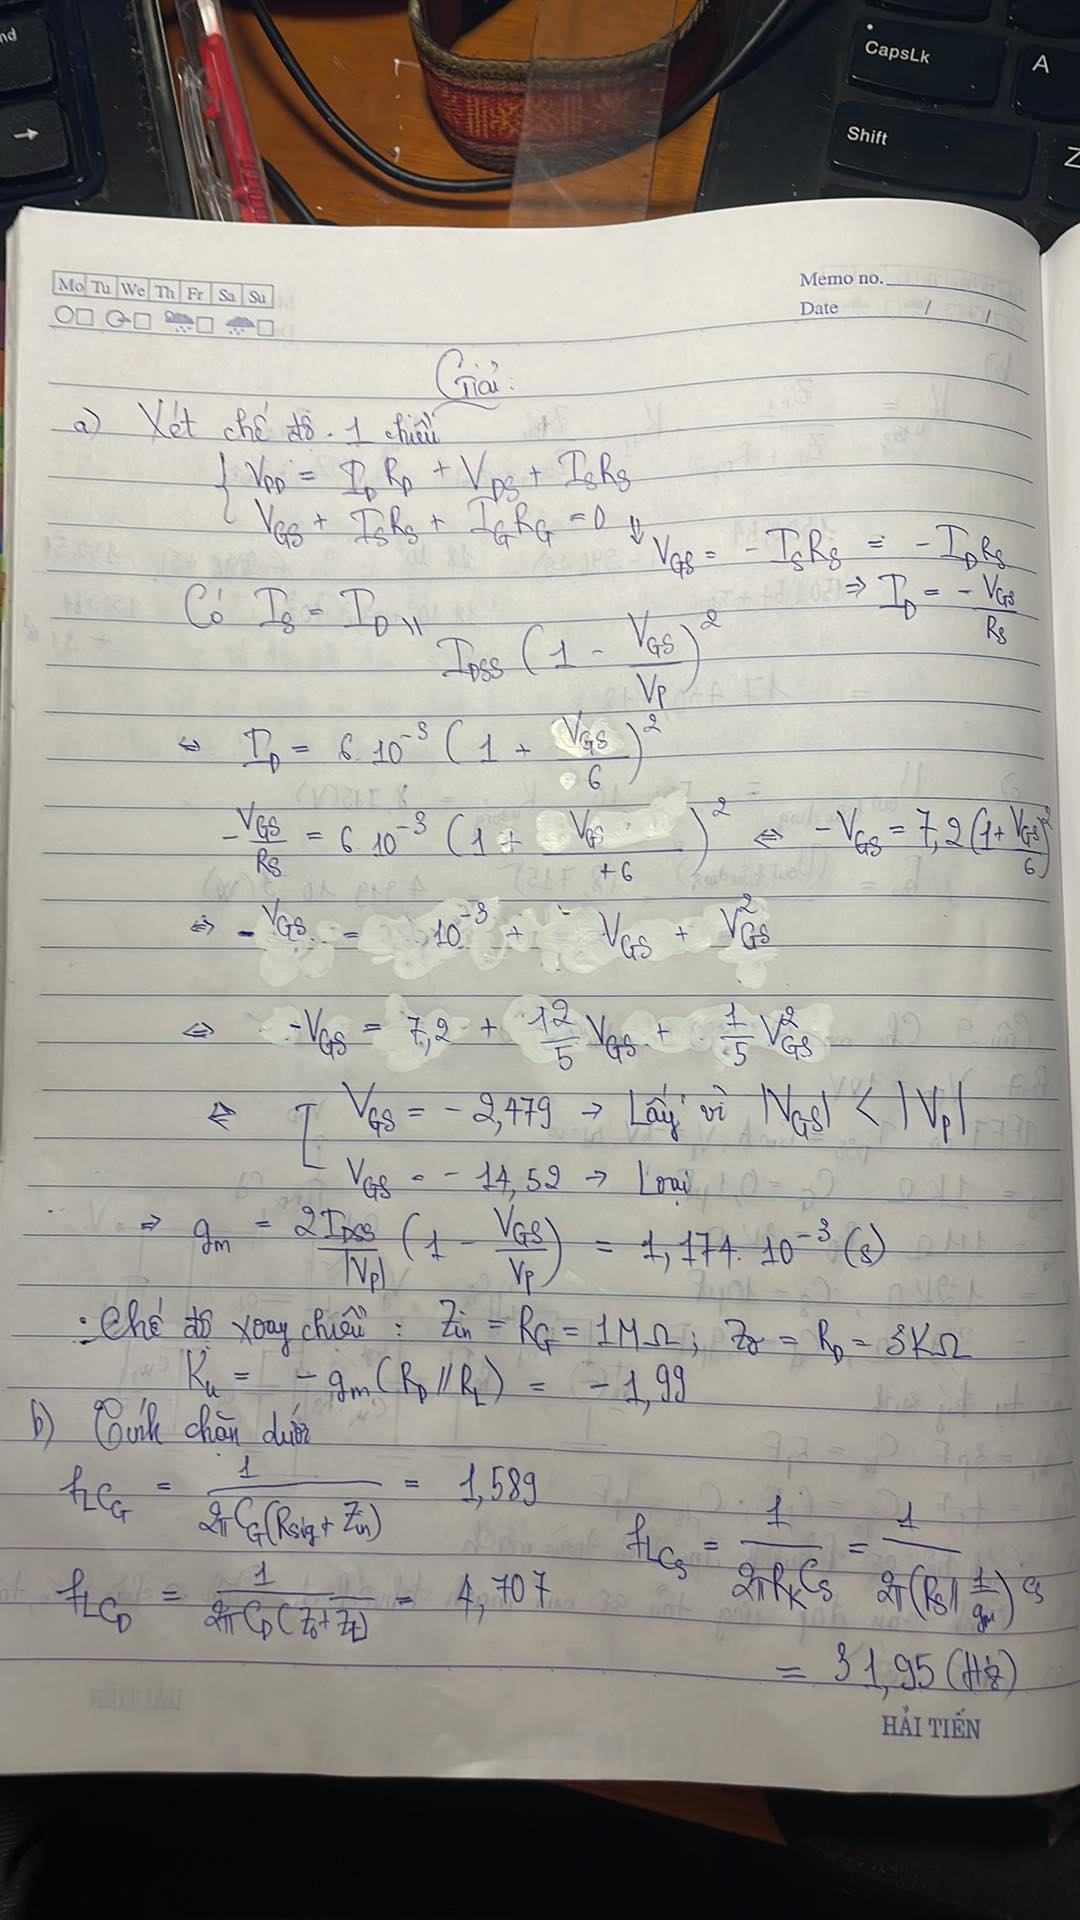 nd
CapsLk
A
Shift
Z
Mo Tu We Th Fr Sa Su
Memo no.
Date / /
Giải:
a) Xét chế độ 1 chiều
{ V_DD = I_D R_D + V_DS + I_S R_S
V_GS + I_S R_S + I_G R_G = 0
⇒ V_GS = - I_S R_S = - I_D R_S
Có I_S = I_D
⇒ I_D = - V_GS / R_S
I_DSS (1 - V_GS / V_P)^2
⇔ I_D = 6.10^-3 (1 + V_GS / 6)^2
- V_GS / R_S = 6.10^-3 (1 + V_GS / +6)^2 ⇔ - V_GS = 7,2 (1 + V_GS / 6)^2
⇔ - V_GS = 10^-3 + V_GS + V_GS^2
⇔ - V_GS = 7,2 + 12/5 V_GS + 1/5 V_GS^2
⇔ [ V_GS = - 2,479 → Lấy vì |V_GS| < |V_P|
V_GS = - 14,52 → Loại
⇒ g_m = 2I_DSS / |V_P| (1 - V_GS / V_P) = 1,174.10^-3 (s)
: Chế độ xoay chiều : Z_in = R_G = 1MΩ; Z_o = R_D = 3KΩ
K_u = - g_m (R_D // R_L) = - 1,99
b) Tính chặn dưới
f_LC_G = 1 / 2π C_G (R_sig + Z_in) = 1,589
f_LC_S = 1 / 2π R_K C_S = 1 / 2π (R_S // 1/g_m) C_S
f_LC_D = 1 / 2π C_D (Z_o + Z_t) = 4,707
= 31,95 (Hz)
HẢI TIẾN